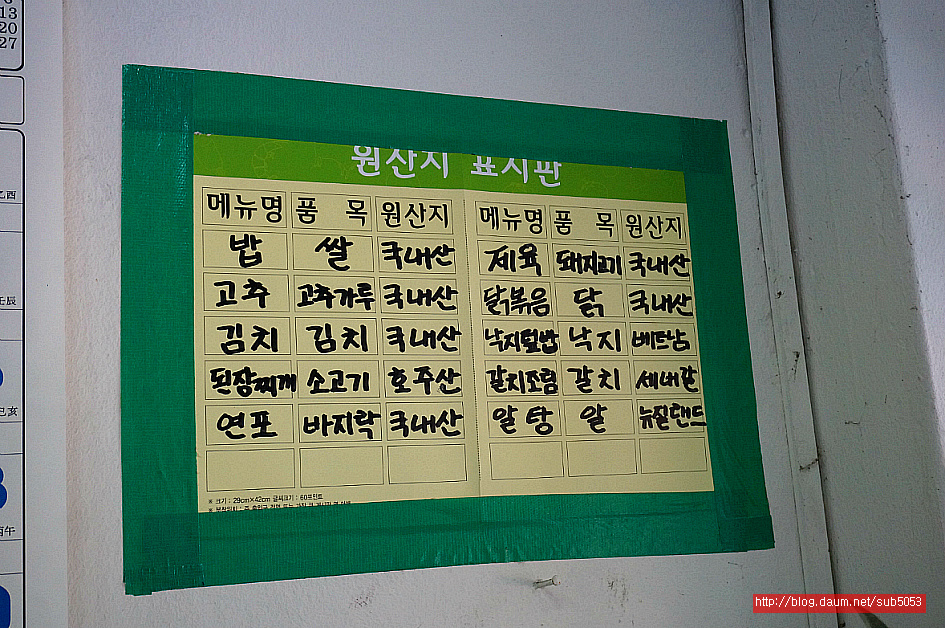 6
13
20
27
원산지 표시판
메뉴명 품 목 원산지
밥 쌀 국내산
고추 고추가루 국내산
김치 김치 국내산
된장찌개 소고기 호주산
연포 바지락 국내산
메뉴명 품 목 원산지
제육 돼지고기 국내산
닭볶음 닭 국내산
낙지덮밥 낙지 베트남
갈치조림 갈치 세네갈
알탕 알 뉴질랜드
※ 크기 : 29cm×42cm 글씨크기 : 60포인트
http://blog.daum.net/sub5053